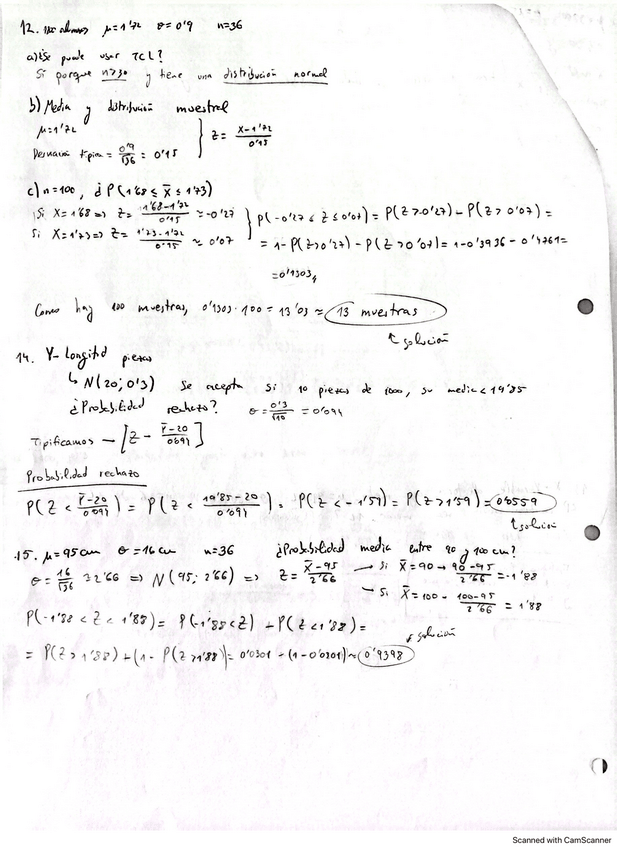 12. 100 alumnos μ=1'72 σ=0'9 n=36
a) ¿Se puede usar TCL?
Si porque n>30 y tiene una distribución normal
b) Media y distribución muestral
μ=1'72
Desviación típica = 0'9/√36 = 0'15 } Z = X-1'72/0'15
c) n=100, ¿P(1'68 ≤ X̄ ≤ 1'73)
Si X=1'68 => Z = 1'68-1'72/0'15 ≈ -0'27
Si X=1'73 => Z = 1'73-1'72/0'15 ≈ 0'07
} P(-0'27 ≤ Z ≤ 0'07) = P(Z>0'27) - P(Z>0'07) =
= 1-P(Z>0'27) - P(Z>0'07) = 1-0'3936 - 0'4761 =
= 0'1303
Como hay 100 muestras, 0'1303·100 = 13'03 ≈ 13 muestras
↑ solución
14. Y- Longitud piezas
↳ N(20; 0'3) Se acepta si 10 piezas de 1000, su media < 19'85
¿Probabilidad rechazo? σ = 0'3/√10 = 0'094
Tipificamos — [Z - Ȳ-20/0'094]
Probabilidad rechazo
P(Z < Ȳ-20/0'094) = P(Z < 19'85-20/0'094) = P(Z < -1'59) = P(Z > 1'59) = 0'0559
↑ solución
15. μ=95cm σ=16cm n=36 ¿Probabilidad media entre 90 y 100 cm?
σ = 16/√36 = 2'66 => N(95; 2'66) => Z = X̄-95/2'66 → Si X̄=90 → 90-95/2'66 = -1'88
↳ Si X̄=100 - 100-95/2'66 = 1'88
P(-1'88 < Z < 1'88) = P(-1'88 < Z) + P(Z < 1'88) =
↓ solución
= P(Z > 1'88) + (1 - P(Z > 1'88)) = 0'0301 - (1-0'0301) ≈ 0'9398
Scanned with CamScanner